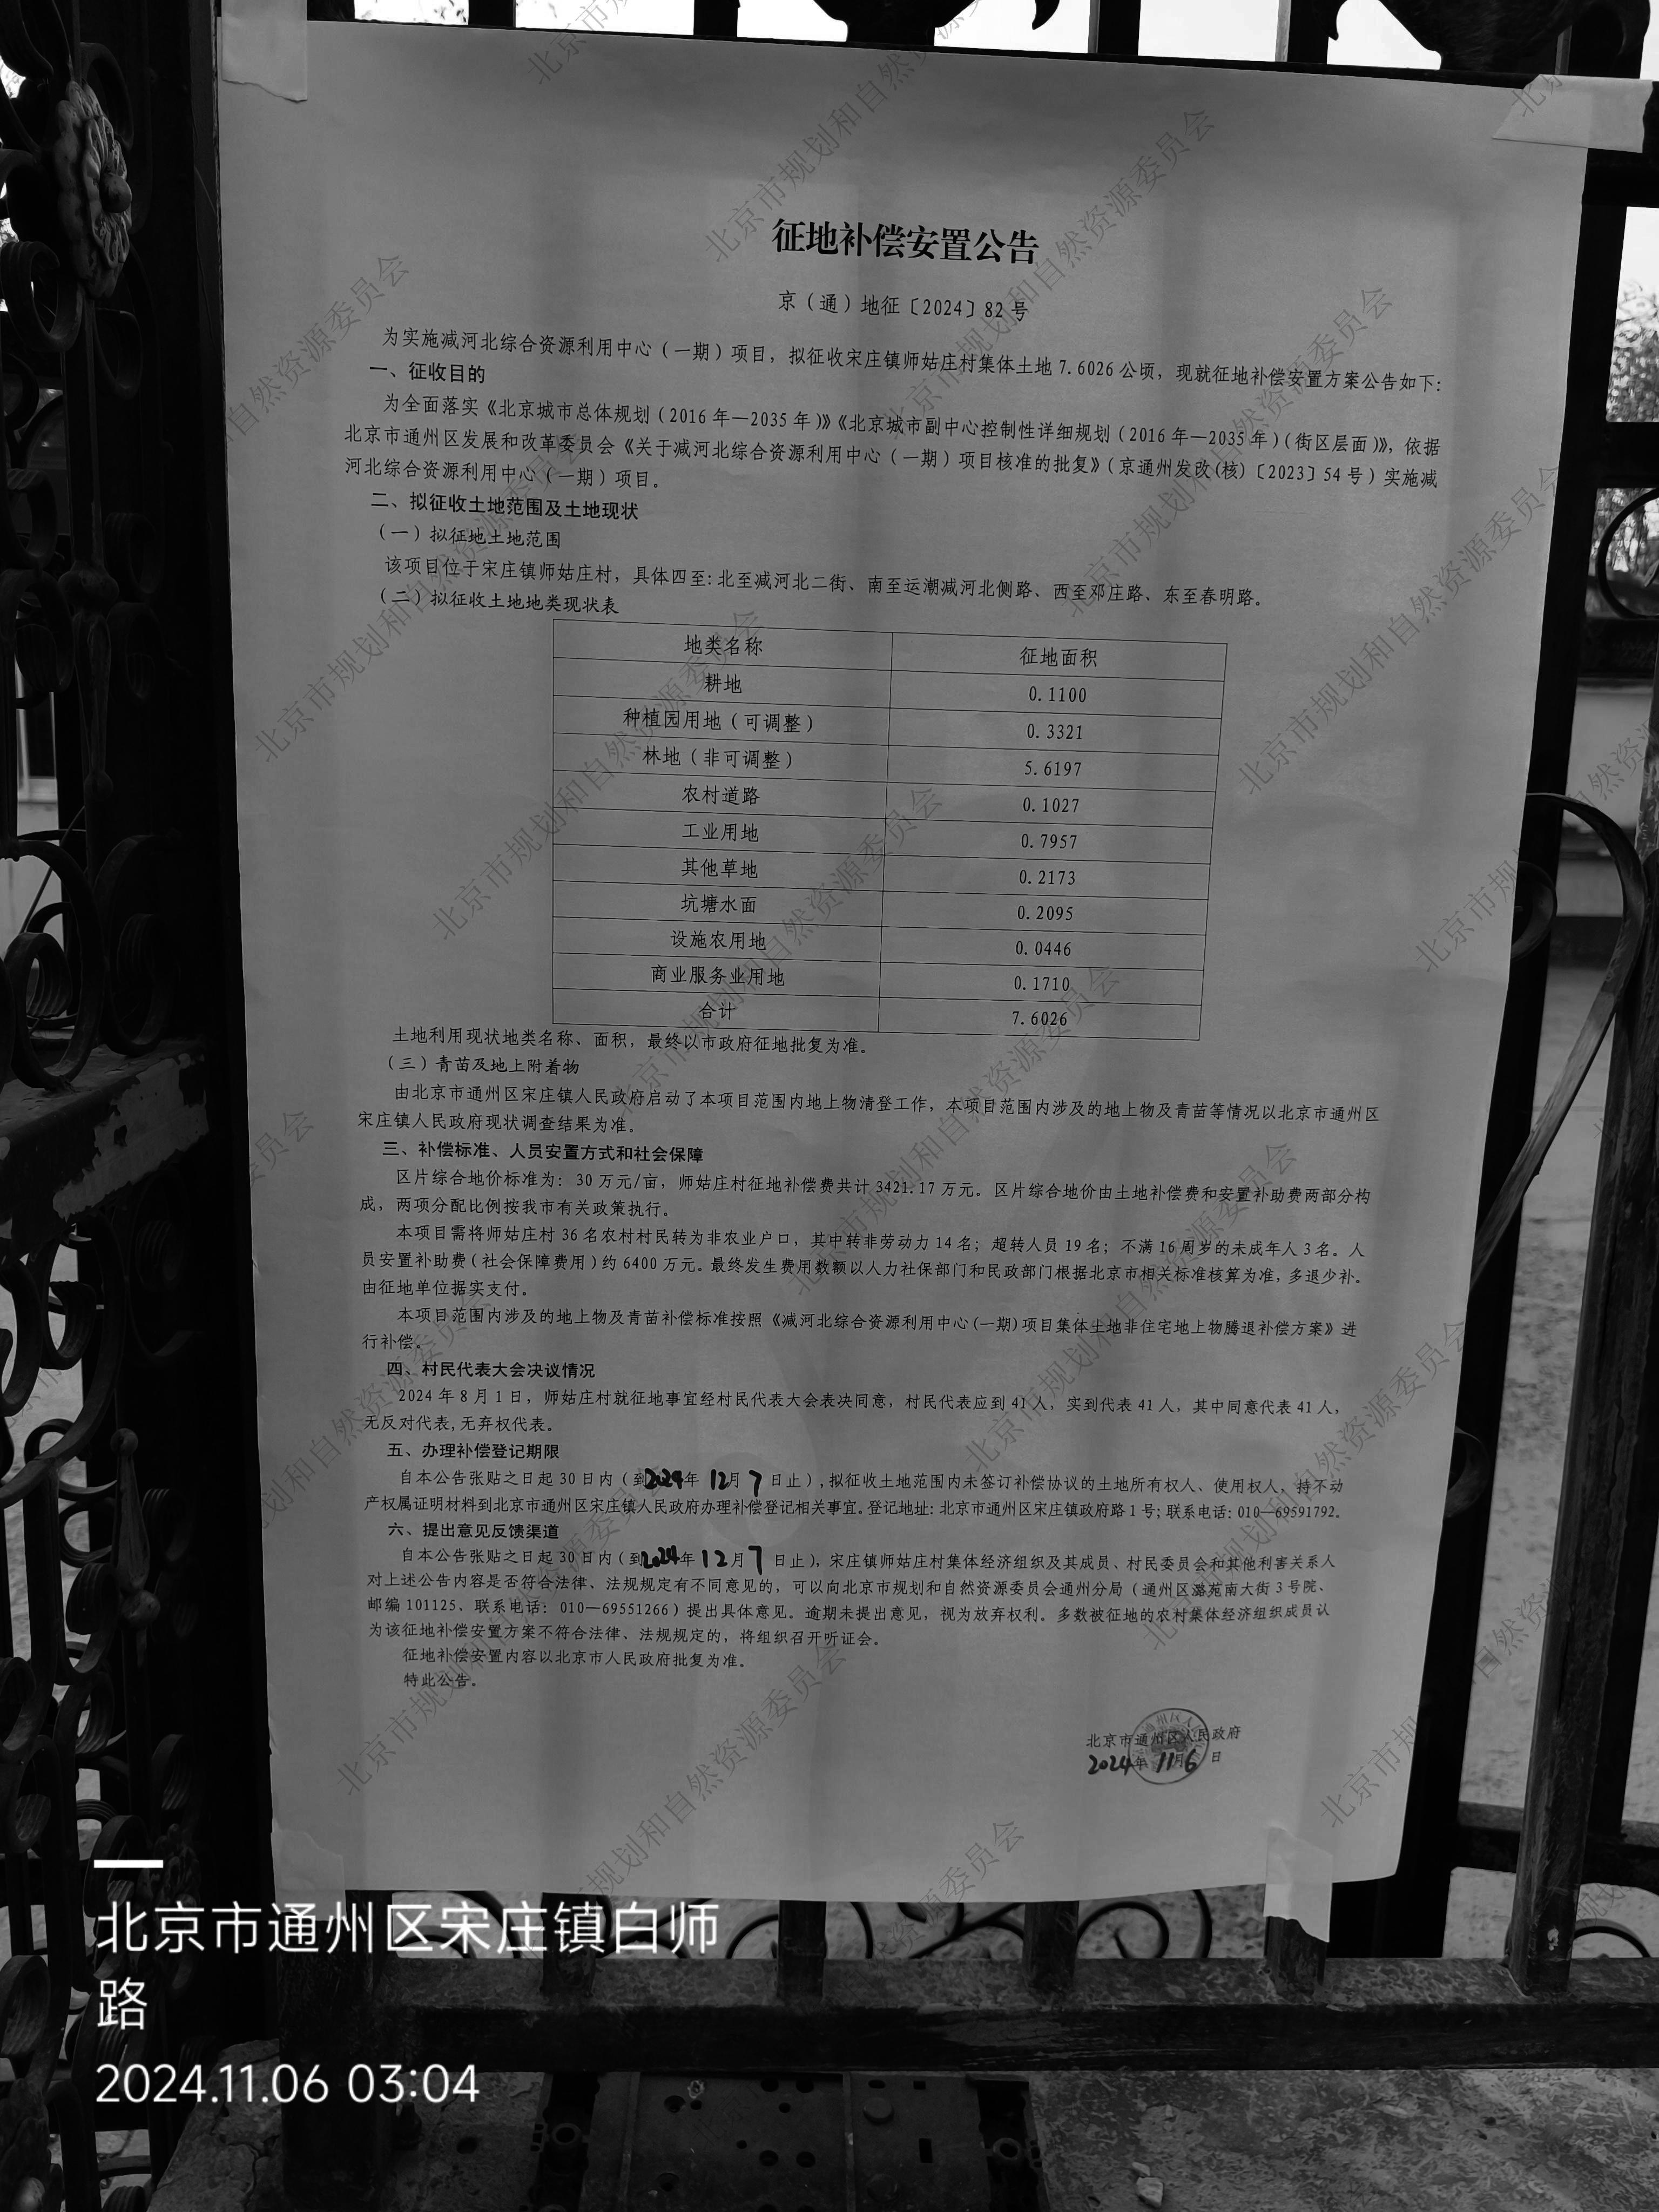 征地补偿安置公告
京（通）地征〔2024〕82号
为实施减河北综合资源利用中心（一期）项目，拟征收宋庄镇师姑庄村集体土地7.6026公顷，现就征地补偿安置方案公告如下：
一、征收目的
为全面落实《北京城市总体规划（2016年—2035年）》《北京城市副中心控制性详细规划（2016年—2035年）（街区层面）》，依据
北京市通州区发展和改革委员会《关于减河北综合资源利用中心（一期）项目核准的批复》（京通州发改(核)〔2023〕54号）实施减
河北综合资源利用中心（一期）项目。
二、拟征收土地范围及土地现状
（一）拟征地土地范围
该项目位于宋庄镇师姑庄村，具体四至：北至减河北二街、南至运潮减河北侧路、西至邓庄路、东至春明路。
（二）拟征收土地地类现状表
地类名称 征地面积
耕地 0.1100
种植园用地（可调整） 0.3321
林地（非可调整） 5.6197
农村道路 0.1027
工业用地 0.7957
其他草地 0.2173
坑塘水面 0.2095
设施农用地 0.0446
商业服务业用地 0.1710
合计 7.6026
土地利用现状地类名称、面积，最终以市政府征地批复为准。
（三）青苗及地上附着物
由北京市通州区宋庄镇人民政府启动了本项目范围内地上物清登工作，本项目范围内涉及的地上物及青苗等情况以北京市通州区
宋庄镇人民政府现状调查结果为准。
三、补偿标准、人员安置方式和社会保障
区片综合地价标准为：30万元/亩，师姑庄村征地补偿费共计3421.17万元。区片综合地价由土地补偿费和安置补助费两部分构
成，两项分配比例按我市有关政策执行。
本项目需将师姑庄村36名农村村民转为非农业户口，其中转非劳动力14名；超转人员19名；不满16周岁的未成年人3名。人
员安置补助费（社会保障费用）约6400万元。最终发生费用数额以人力社保部门和民政部门根据北京市相关标准核算为准，多退少补。
由征地单位据实支付。
本项目范围内涉及的地上物及青苗补偿标准按照《减河北综合资源利用中心(一期)项目集体土地非住宅地上物腾退补偿方案》进
行补偿。
四、村民代表大会决议情况
2024年8月1日，师姑庄村就征地事宜经村民代表大会表决同意，村民代表应到41人，实到代表41人，其中同意代表41人，
无反对代表,无弃权代表。
五、办理补偿登记期限
自本公告张贴之日起30日内（到2024年12月7日止），拟征收土地范围内未签订补偿协议的土地所有权人、使用权人，持不动
产权属证明材料到北京市通州区宋庄镇人民政府办理补偿登记相关事宜。登记地址：北京市通州区宋庄镇政府路1号；联系电话：010—69591792。
六、提出意见反馈渠道
自本公告张贴之日起30日内（到2024年12月7日止），宋庄镇师姑庄村集体经济组织及其成员、村民委员会和其他利害关系人
对上述公告内容是否符合法律、法规规定有不同意见的，可以向北京市规划和自然资源委员会通州分局（通州区潞苑南大街3号院、
邮编101125、联系电话：010—69551266）提出具体意见。逾期未提出意见，视为放弃权利。多数被征地的农村集体经济组织成员认
为该征地补偿安置方案不符合法律、法规规定的，将组织召开听证会。
征地补偿安置内容以北京市人民政府批复为准。
特此公告。
北京市通州区人民政府
2024年11月6日
北京市规划和自然资源委员会
北京市通州区宋庄镇白师
路
2024.11.06 03:04